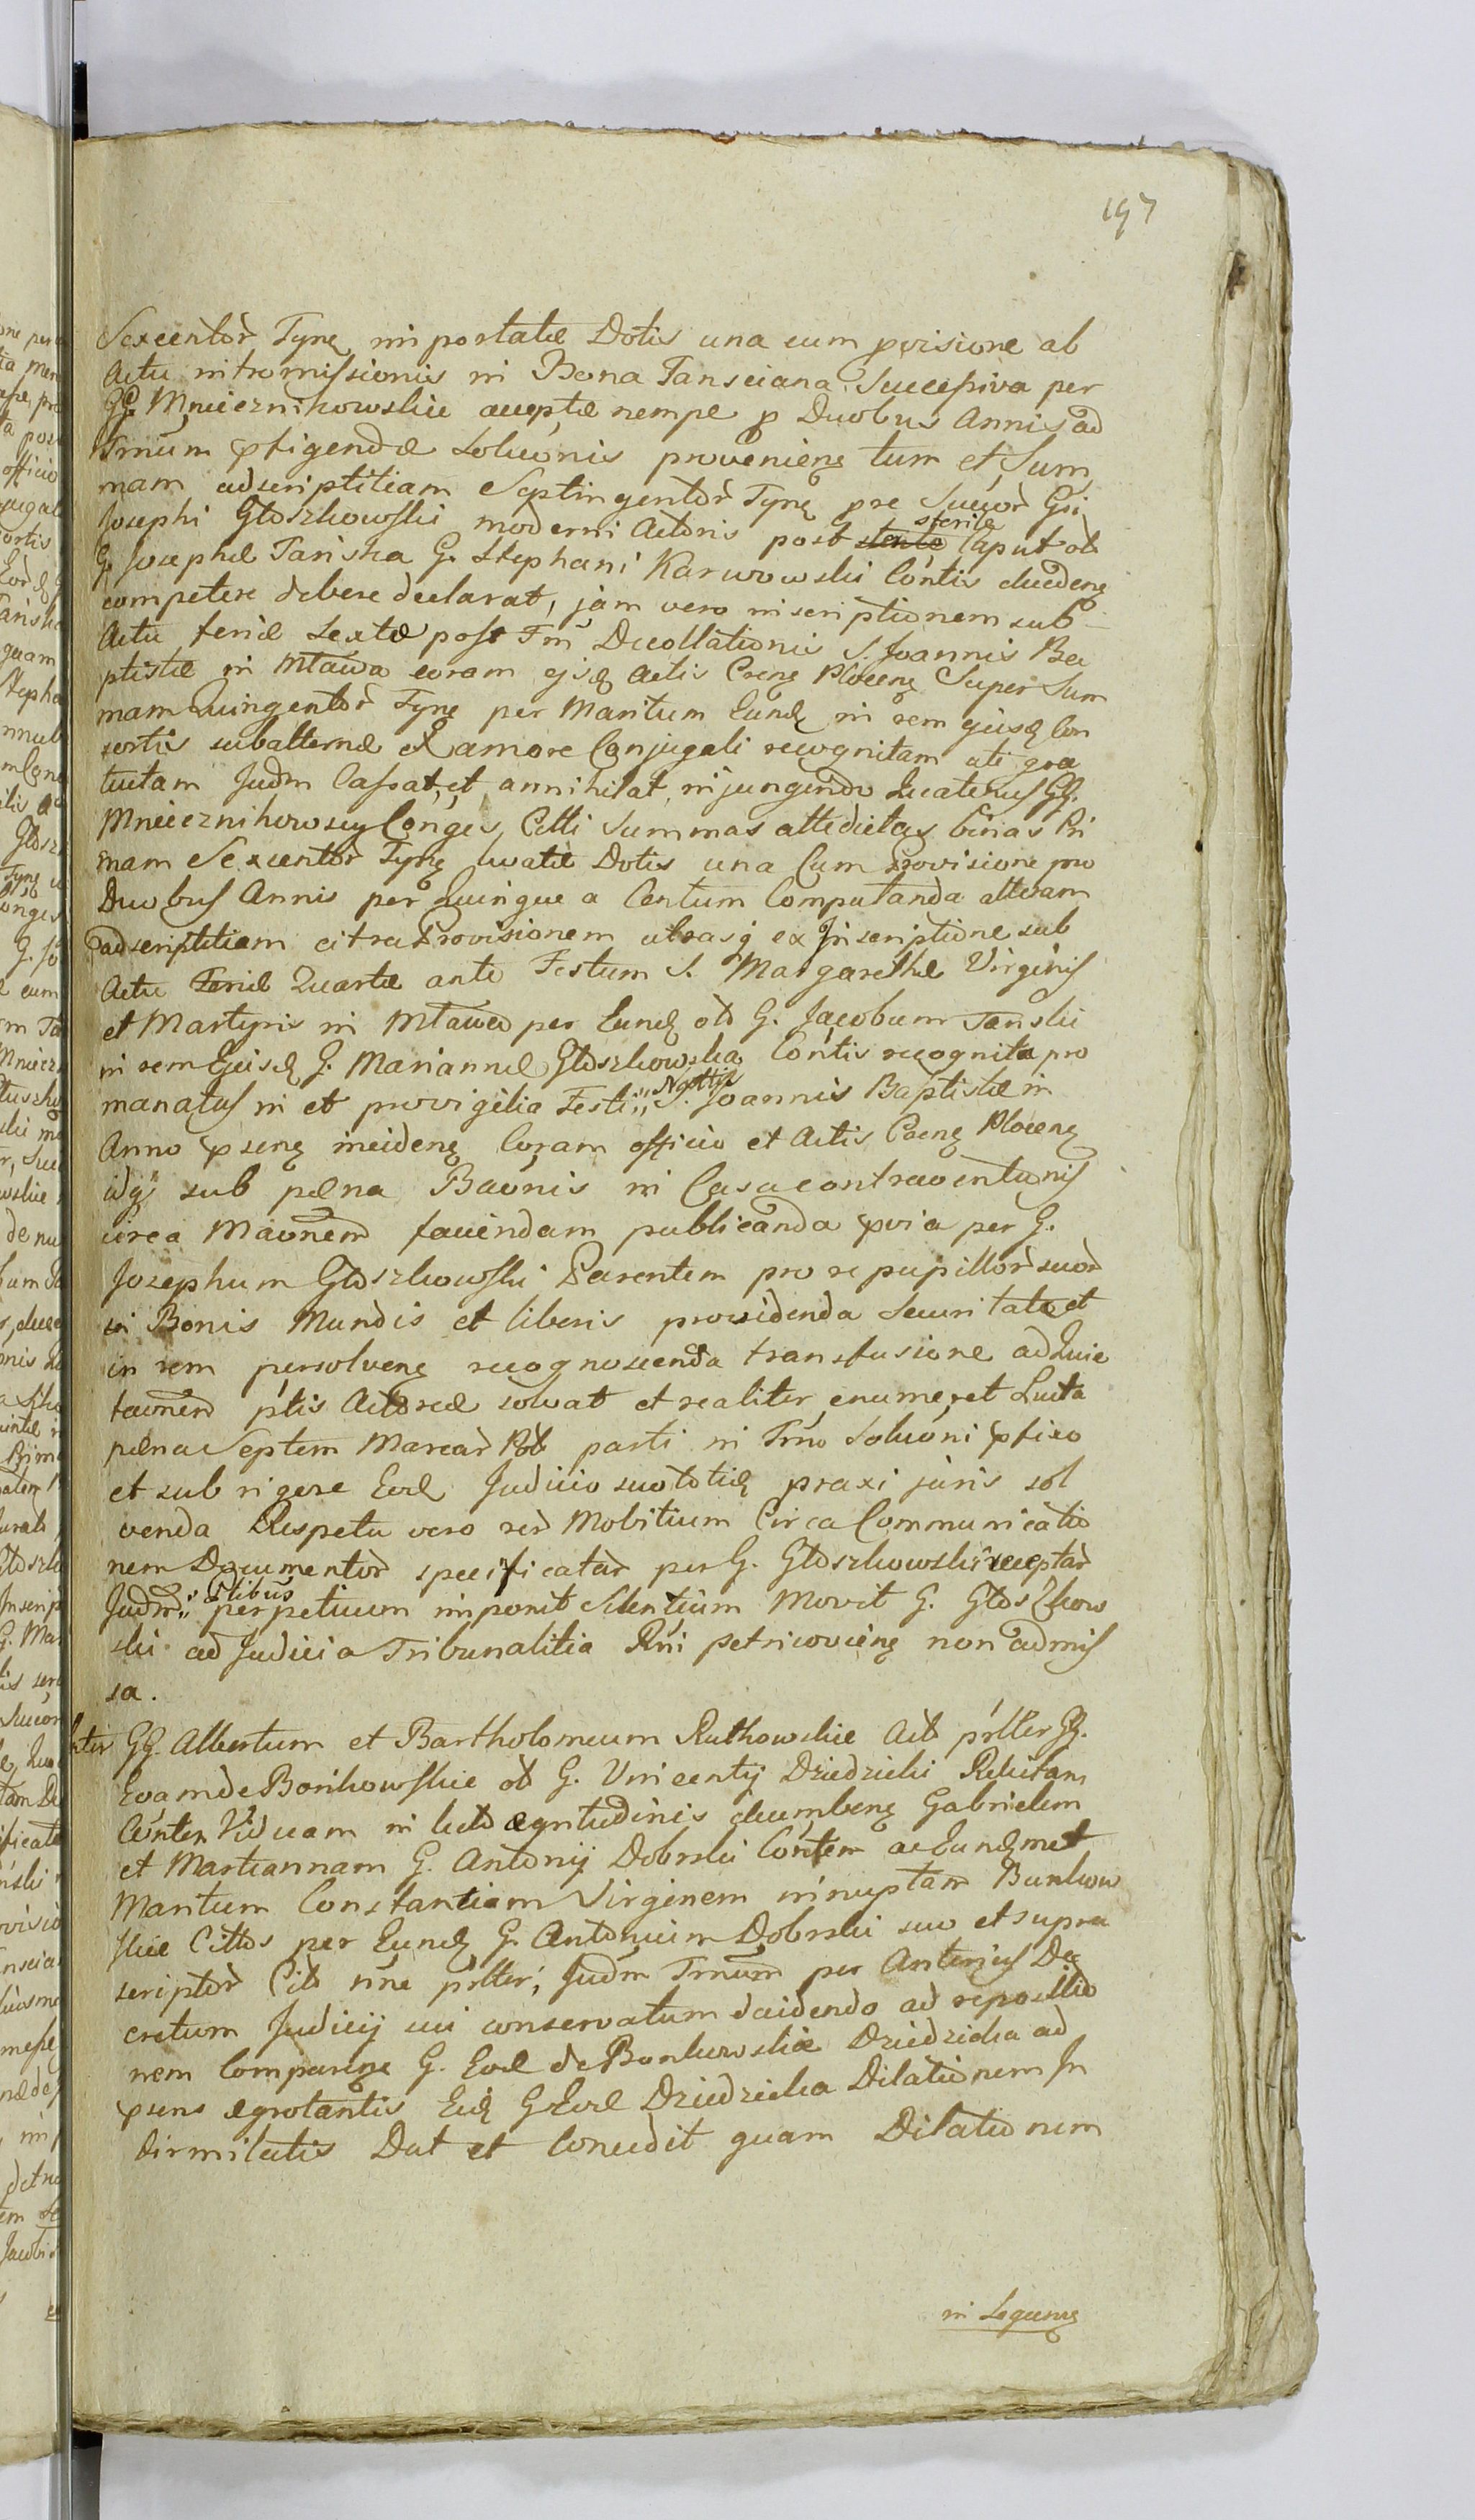 197
Sexcentor Tyne importatæ Dotis una cum pvisione ab
Actu intromissionis in Bona Tansciana Successiva per
GG. Mnieeznikowskie acceptæ nempe p Duobus Annis ad
Trnum pfigendæ Soluōnis proveniene tum et Sum
mam adscriptitiam Septingentor Tyne pre Succor Gsi
Josephi Głoszkowski moderni Actoris post sterile Caput ol
G. Josephæ Tariska G. Stephani Karwowski Contis decedene
competere debere declarat, jam vero inscriptionem sub
Actu feriæ Sextæ post Fm Decollationis S. Joannis Ba
ptistæ in Mława coram ejsd Actis Crene Plocene Super Sum
mam Quingentor Tyne per Maritum Eund in rem ejusd Con
sortis subalternæ ex amore Conjugali recognitam uti gra
tuitam Judm Cassat, et annihilat, injungendo Quatenus GG.
Mnieeznikowscy Conges Citti Summas attedictas binas Pri
mam Sexcentor Tyne Dotis una Cum provisione pro
Duobus Annis per Quinque a Centum Computanda alteram
adscriptitiam citra Provisionem utrasq ex Inscriptione sub
Actu Feriæ Quartæ ante Festum S. Margarethæ Virginis
et Martyris in Mława per Eund olo G. Jacobum Tanski
in rem Ejusd G. Mariannæ Głoszkowska Contis recognita pro
manatus in et pro vigilia Festi Nattis S. Joannis Baptistæ in
Anno psene incidene Coram officio et Actis Caene Plocene
idq sub pæna Baōnis in Casu contraventionis
circa Maōnem faciendam publicanda pvia per G.
Josephum Głoszkowski Parentem pro re pupillor suor
in Bonis Mundis et liberis providenda Securitate et
in rem persolvene recognoscenda transfusione ad Quie
taōnem ptis Actoreæ solvat et realiter enumeret Lucta
pæna Septem Marcar Pol parti in Trno Soluōni pfixo
et sub rigore Evæ Judicio suo totiæ praxi juris sol
venda Respectu vero rer Mobilium Circa Communicatio
nem Documentor specificatar per G. Głoszkowski receptar
Judm Ptibus perpetuum imponit Silentium Movit G. Głoszkow
ski ad Judicia Tribunalitia Rni Petricoviene non admis
sa.
Inter GG. Albertum et Bartholomeum Rutkowskie Act pttter GG.
Evam de Bońkowskie ol G. Vincentij Dziedzicki Relictam
Contem Viduam in lecto ægritudinis decumbene Gabrielem
et Martiannam G. Antonij Dobrski Contem ac Eundmet
Maritum Constantiam Virginem innuptam Bunkow
skie Cittos per Eund G. Antonium Dobrski suo et supra
scriptor Cito nne ptter, Judm Trnum per Anterius De
cretum Judicij sui conservatum decidendo ad repositio
nem Comparene G. Evæ de Bonkowskie Dziedzicka ad
psens ægrotantis Eid G Evæ Dziedzicka Dilationem In
firmitatis Dat et Concedit quam Dilationem
in Sequene